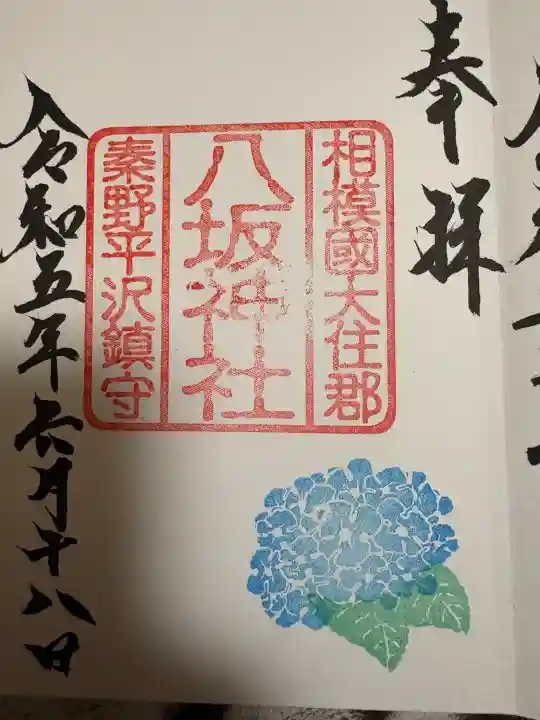 奉拝
相模國大住郡
八坂神社
秦野平沢鎮守
令和五年六月十八日